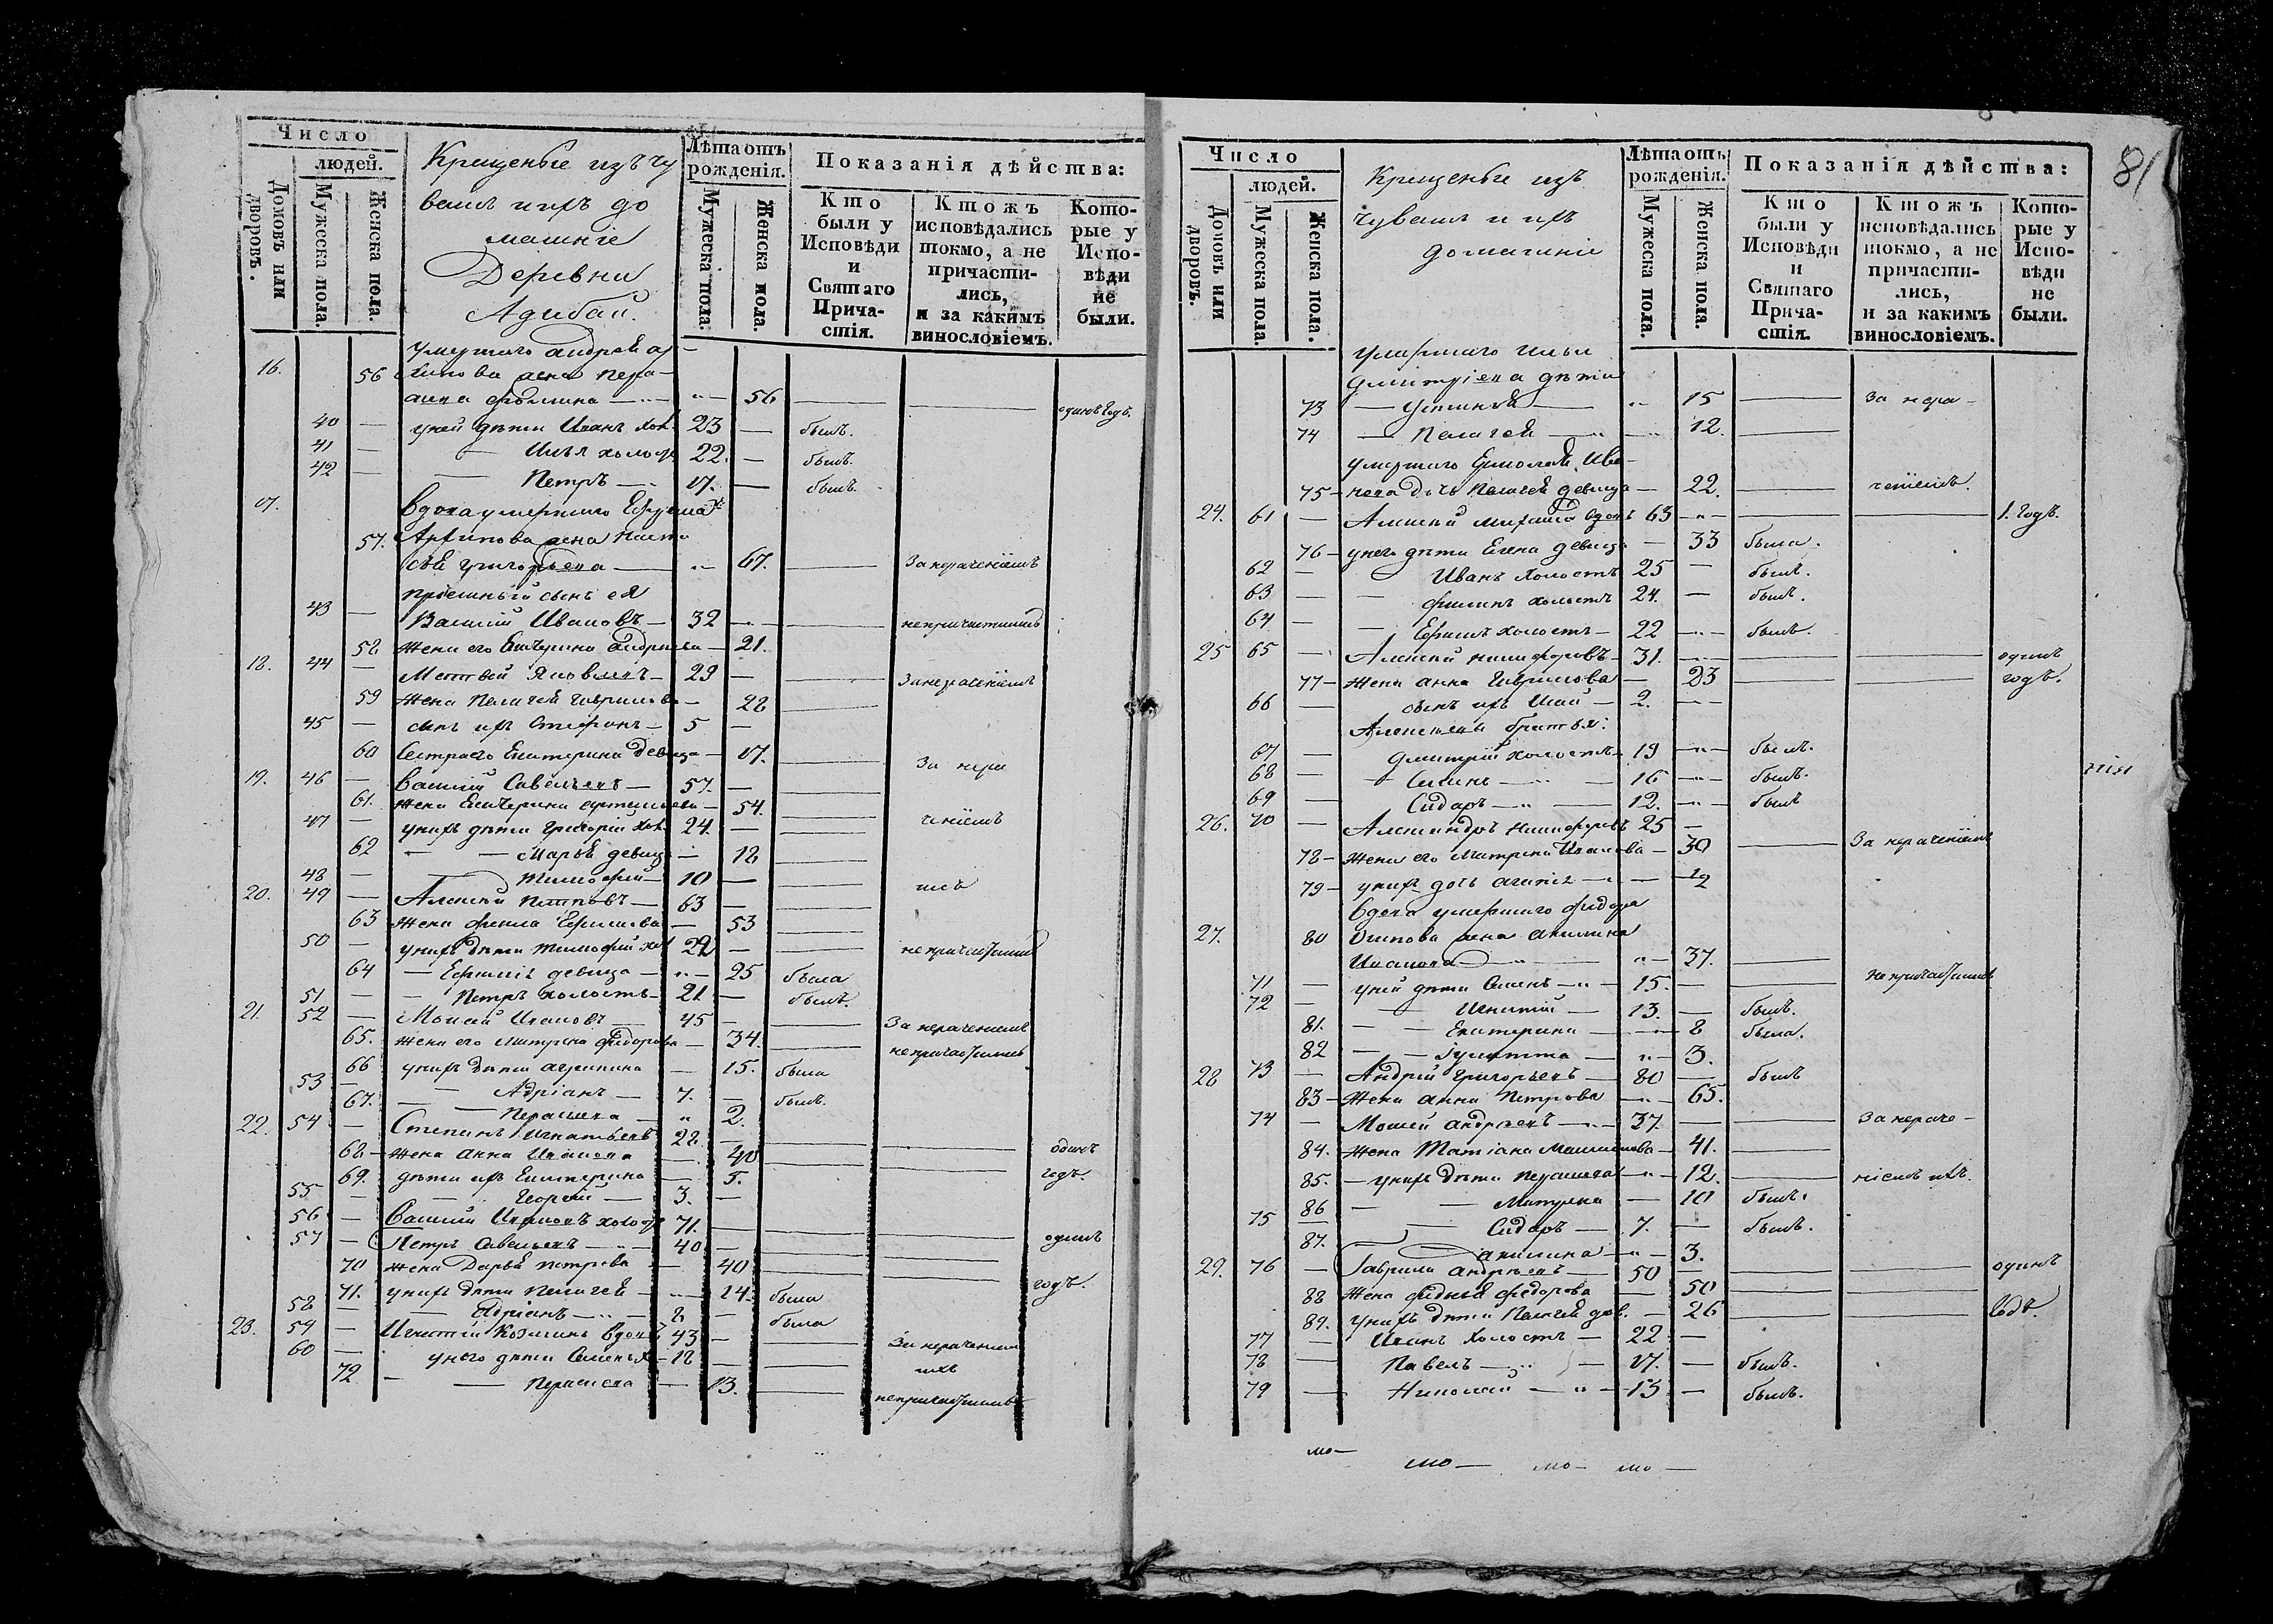 Число
людей.
Домовъ или дворовъ.
Мужеска пола.
Женска пола.
Крещеные изъ чу
вашъ и ихъ до
машніе
Деревни
Лѣта отъ рожденія.
Мужеска пола.
Женска пола.
Показанія дѣйства:
Кто были у Исповѣди и Святаго Причастія.
Ктожъ исповѣдались токмо, а не причастились, и за какимъ винословіемъ.
Которые у Исповѣди не были.
умершаго Андрея Ар
16. 56 хипова жена Пера-
Фомина 56 одинъ годъ.
40 у ней дѣти Иванъ хол. 23 былъ.
41 Илья холос 22. былъ.
42 Петръ 17. былъ.
17. Вдова умершаго Ефрема
57. Архипова жена Наста
сья Григорьева 67. За нерачениемъ
приемный сынъ ея
43 Василий Ивановъ 32 непричастились
58 жена его Катерина Андреева 21.
18. 44 Матвей Яковлевъ 29 За нерачениемъ
59 жена Пелагея Гаврилова 28
45 сынъ ихъ Стефанъ 5
60 Сестра его Екатерина девица 17. За нера
19. 46 Василий Савельевъ 57.
61. жена Катерина Артемьева 54.
47 у нихъ дѣти Григорий хол. 24. чениемъ
62 Марья девица 18
48 Тимофей 10 ихъ
20. 49 Алексей Петровъ 63
63 жена Фекла Ефимова 53
50 у нихъ дѣти Тимофей хол 29 непричастились
64 девица 25 была
51 Петръ холостъ 21 былъ.
21. 52 Моисей Ивановъ 45 За нерачениемъ
65. жена его Матрена Федорова 34. непричастились
66 у нихъ дѣти Агрипина 15. была
53 Адріанъ 7. былъ.
67. 2.
22. 54 Степанъ Игнатьевъ 28 одинъ
68 жена Анна Иванова 40
69. дѣти ихъ Екатерина 5. годъ.
55 Георгий 3.
56 Василий Ивановъ холос 71. одинъ
57 Петръ Савельевъ 40
70 жена Дарья Петрова 40 годъ.
71. у нихъ дѣти Пелагея 14. была
58 Адріанъ 8 была
23. 59 Игнатий Козминъ вдовъ 43 За нерачениемъ
60 у него дѣти Семенъ 18 ихъ
72 13. непричастились
81
Число
людей.
Домовъ или дворовъ.
Мужеска пола.
Женска пола.
Крещеные изъ
чувашъ и ихъ
домашніе
Лѣта отъ рожденія.
Мужеска пола.
Женска пола.
Показанія дѣйства:
Кто были у Исповѣди и Святаго Причастія.
Ктожъ исповѣдались токмо, а не причастились, и за какимъ винословіемъ.
Которые у Исповѣди не были.
умершаго Ильи
Дмитріева дѣти
73 Устинья 15 За нера-
74 Пелагея 12.
умершаго Ермолая Ива-
75 нова дочь Пелагея девица 22. чениемъ.
24. 61 Алексей вдовъ 63 1. годъ.
76 у него дѣти Елена девица 33 была.
62 Иванъ холостъ 25 былъ.
63 Филипъ холостъ 24. былъ.
64 Ефимъ холостъ 22 былъ.
25 65 Алексей Никифоровъ 31. одинъ
77 жена Анна Гаврилова 23 годъ.
66 сынъ ихъ 2.
Алексеевы братья:
67 Дмитрий холостъ 19 былъ.
68 Семенъ 16 былъ.
69 Сидоръ 12. былъ
26. 70 Александръ Никифоровъ 25
78 жена его Матрена Иванова 30 За нерачениемъ
79 у нихъ дочь 12
вдова умершаго Федора
27. 80 Осипова жена Акилина
Иванова 37.
71 у ней дѣти Семенъ 15. непричастились
72 Игнатий 13. былъ.
81. Екатерина 8 была.
82 3.
28 73 Андрей Григорьевъ 80 былъ
83 жена Анна Петрова 65.
74 Моисей Андреевъ 37. За нераче-
84. жена Татіана Максимова 41.
85. у нихъ дѣти 12. ніемъ ихъ.
86 Матрена 10 былъ.
75 Сидоръ 7. былъ.
87. Акилина 3.
29. 76 Гаврила Андреевъ 50 одинъ
88 жена Федорова 50
89. у нихъ дѣти Пелагея дев. 26 годъ.
77 Иванъ холостъ 22
78 Павелъ 17. былъ.
79 Николай 13 былъ.
мо—
мо— мо— мо—